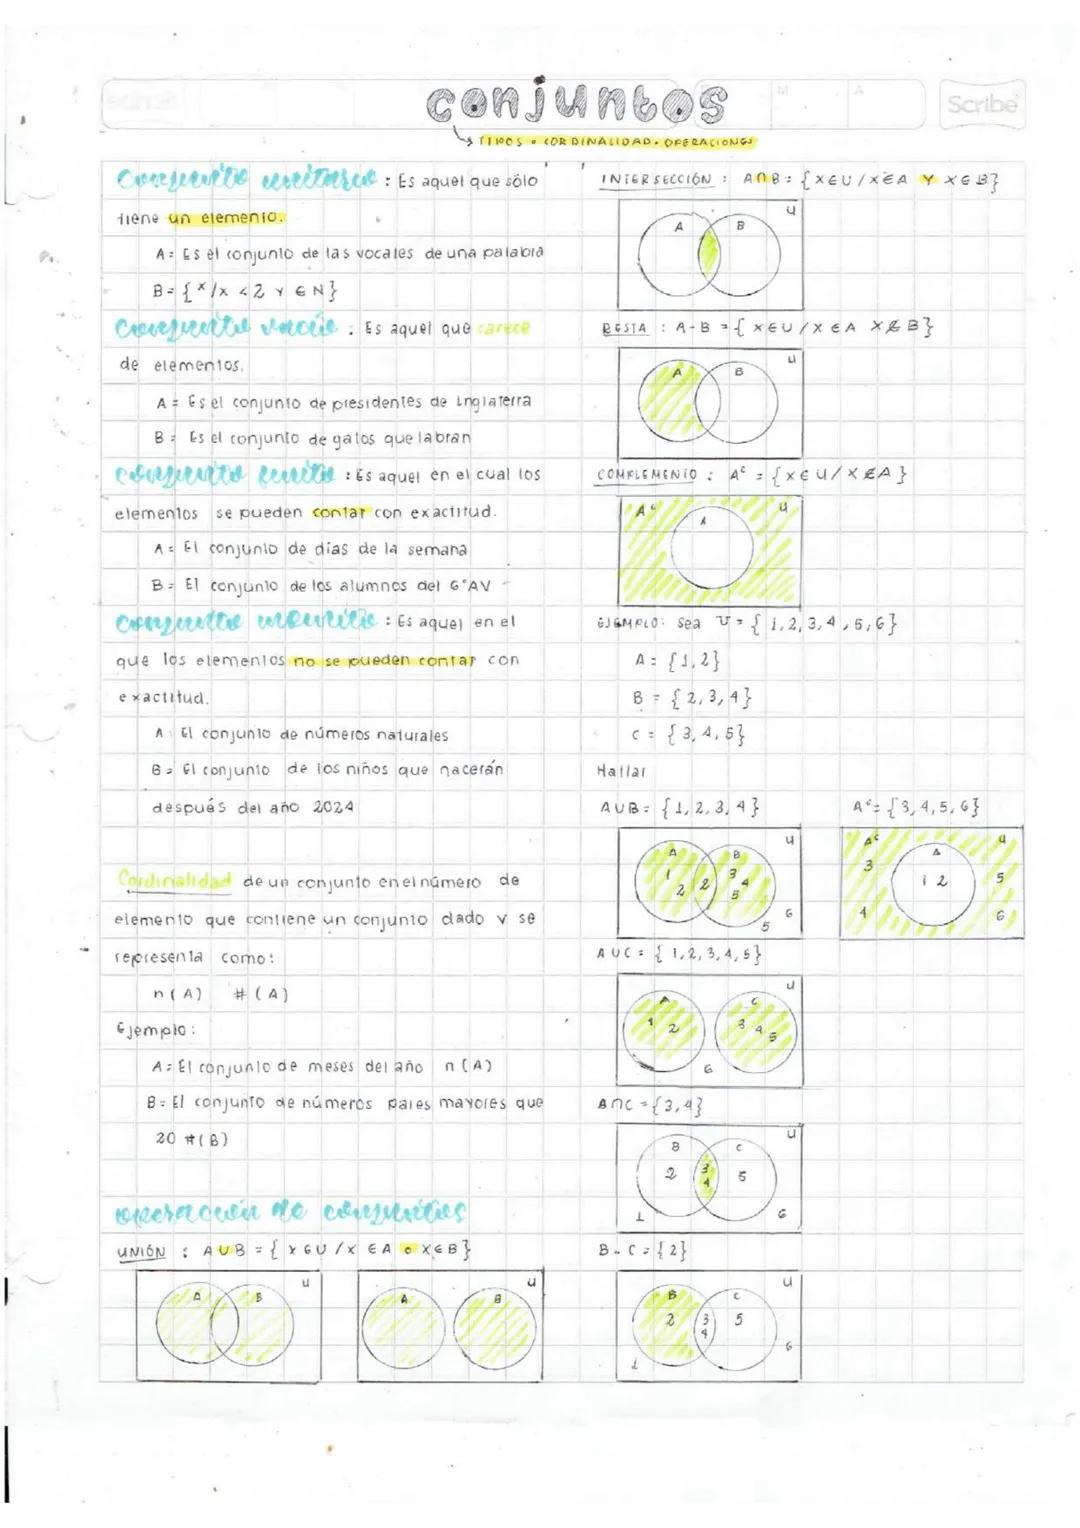 conjuntos
Scribe
TIPOS • CORDINALIDAD • OPERACIONES
Conjunto unitario : Es aquel que sólo
tiene un elemento.
A = Es el conjunto de las vocales de una palabra
B = { x/x < 2 Y ∈ N}
Conjunto vacío : Es aquel que carece
de elementos.
A = Es el conjunto de presidentes de Inglaterra
B = Es el conjunto de gatos que labran
conjunto finito : Es aquel en el cual los
elementos se pueden contar con exactitud.
A = El conjunto de días de la semana
B = El conjunto de los alumnos del 6°AV
conjunto infinito : Es aquel en el
que los elementos no se pueden contar con
exactitud.
A = El conjunto de números naturales
B = El conjunto de los niños que nacerán
después del año 2024
Cordinalidad de un conjunto en el número de
elemento que contiene un conjunto dado y se
representa como:
n(A) #(A)
Ejemplo:
A = El conjunto de meses del año n(A)
B = El conjunto de números pares mayores que
20 #(B)
operación de conjuntos
UNIÓN : A U B = { X ∈ U / X ∈ A o X ∈ B}
A B U
A B U
INTERSECCIÓN : A ∩ B = { X ∈ U / X ∈ A Y X ∈ B}
A B U
RESTA : A - B = { X ∈ U / X ∈ A X ∉ B}
A B U
COMPLEMENTO : Aᶜ = { X ∈ U / X ∉ A}
Aᶜ A U
EJEMPLO: Sea U = { 1,2,3,4,5,6}
A = {1,2}
B = {2,3,4}
C = {3,4,5}
Hallar
A U B = {1,2,3,4}
A B U
1 2 2 3 4 5 6
5
Aᶜ = {3,4,5,6}
Aᶜ A U
3 1 2 5
4 6
A U C = { 1,2,3,4,5}
A C U
1 2 3 4 5
6
B ∩ C = {3,4}
B C U
2 3 4 5
1 6
B - C = {2}
B C U
2 3 4 5
1 6